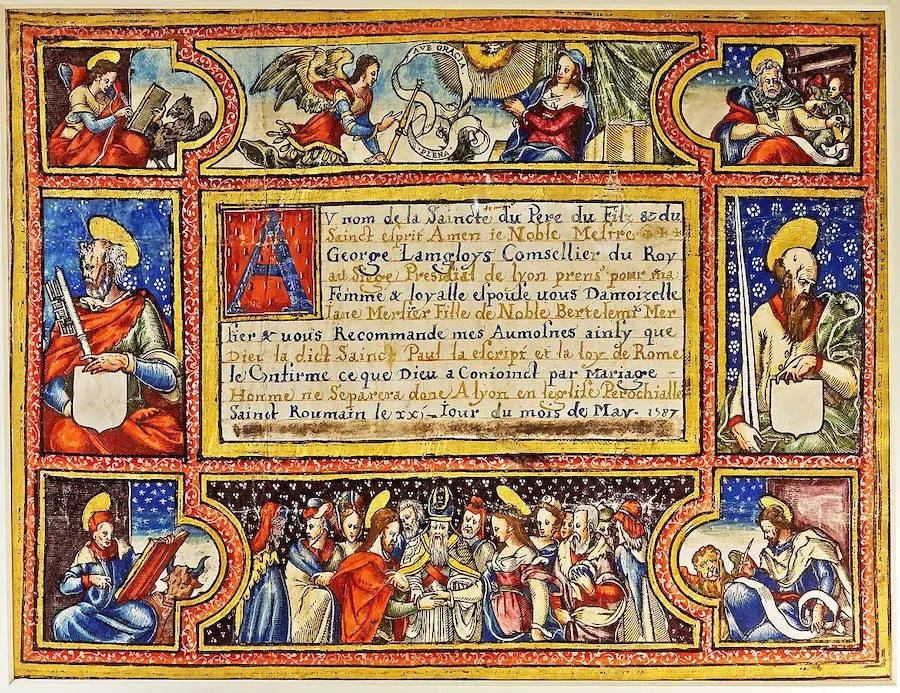 AVE GRACI
PLENA
AV nom de la Saincte du Pere du Filz & du
Sainct esprit Amen ie Noble Mestre
George Lamgloys Comsellier du Roy
au Siege Presidial de lyon prens pour ma
Femme & loyalle espouse uous Damoizelle
Iane Merlier Fille de Noble Bertelemt Mer
lier & uous Recommande mes Aumosnes ainsy que
Dieu la dict Sainct Paul la escript et la loy de Rome
le Confirme ce que Dieu a Conioinct par Mariage
Homme ne Separera donc A lyon en leglise Perochialle
Sainct Roumain le xxi iour du mois de May 1587